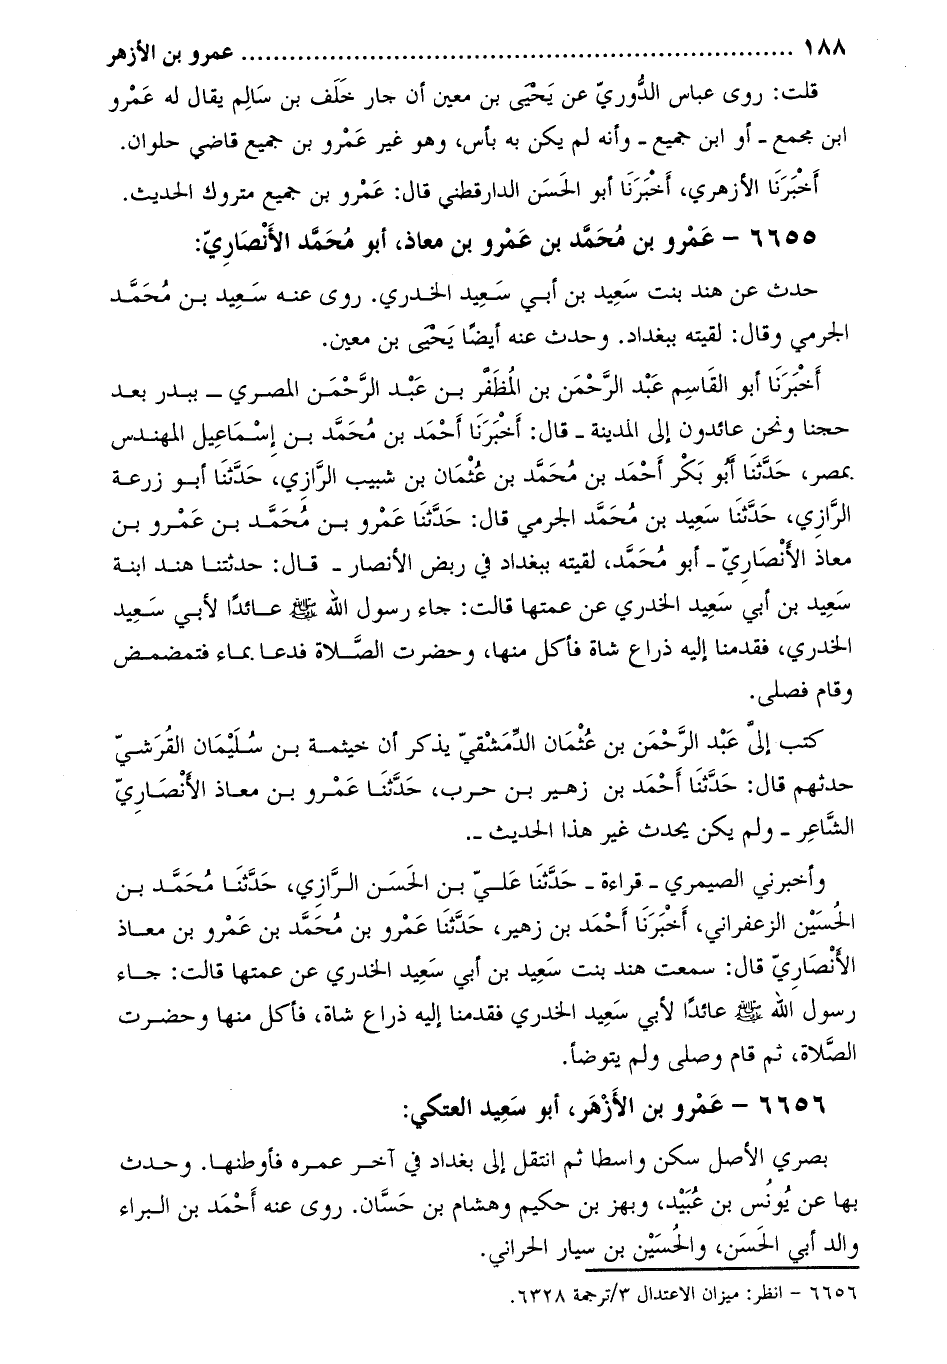 ١٨٨ ..................................................................... عمرو بن الأزهر
قلت: روى عباس الدُّوريّ عن يَحْيَى بن معين أن جار خَلَف بن سَالِم يقال له عَمْرو
ابن مجمع ـ أو ابن جميع ـ وأنه لم يكن به بأس، وهو غير عَمْرو بن جميع قاضي حلوان.
أَخْبَرَنَا الأزهري، أَخْبَرَنَا أبو الحَسَن الدارقطني قال: عَمْرو بن جميع متروك الحديث.
٦٦٥٥ - عَمْرو بن مُحَمَّد بن عَمْرو بن معاذ، أبو مُحَمَّد الأَنْصَارِيّ:
حدث عن هند بنت سَعِيد بن أبي سَعِيد الخدري. روى عنه سَعِيد بن مُحَمَّد
الجرمي وقال: لقيته ببغداد. وحدث عنه أيضًا يَحْيَى بن معين.
أَخْبَرَنَا أبو القَاسِم عَبْد الرَّحْمَن بن المُظَفَّر بن عَبْد الرَّحْمَن المصري ــ ببدر بعد
حجنا ونحن عائدون إلى المدينة ـ قال: أَخْبَرَنَا أَحْمَد بن مُحَمَّد بن إسْمَاعِيل المهندس
بمصر، حَدَّثَنَا أَبُو بَكْر أَحْمَد بن مُحَمَّد بن عُثْمَان بن شبيب الرَّازِي، حَدَّثَنَا أبو زرعة
الرَّازِي، حَدَّثَنَا سَعِيد بن مُحَمَّد الجرمي قال: حَدَّثَنَا عَمْرو بن مُحَمَّد بن عَمْرو بن
معاذ الأَنْصَارِيّ ـ أبو مُحَمَّد، لقيته ببغداد في ربض الأنصار ـ قال: حدثتنا هند ابنة
سَعِيد بن أبي سَعِيد الخدري عن عمتها قالت: جاء رسول الله ﷺ عائدًا لأبي سَعِيد
الخدري، فقدمنا إليه ذراع شاة فأكل منها، وحضرت الصَّلاة فدعا بماء فتمضمض
وقام فصلى.
كتب إليَّ عَبْد الرَّحْمَن بن عُثْمَان الدِّمَشْقيّ يذكر أن خيثمة بن سُلَيْمَان القُرَشيّ
حدثهم قال: حَدَّثَنَا أَحْمَد بن زهير بن حرب، حَدَّثَنَا عَمْرو بن معاذ الأَنْصَارِيّ
الشَّاعِر ـ ولم يكن يحدث غير هذا الحديث ـ.
وأخبرني الصيمري ـ قراءة ـ حَدَّثَنَا عَليّ بن الحَسَن الرَّازِي، حَدَّثَنَا مُحَمَّد بن
الحُسَيْن الزعفراني، أَخْبَرَنَا أَحْمَد بن زهير، حَدَّثَنَا عَمْرو بن مُحَمَّد بن عَمْرو بن معاذ
الأَنْصَارِيّ قال: سمعت هند بنت سَعِيد بن أبي سَعِيد الخدري عن عمتها قالت: جاء
رسول الله ﷺ عائدًا لأبي سَعِيد الخدري فقدمنا إليه ذراع شاة، فأكل منها وحضرت
الصَّلاة، ثم قام وصلى ولم يتوضأ.
٦٦٥٦ - عَمْرو بن الأَزْهَر، أبو سَعِيد العتكي:
بصري الأصل سكن واسطا ثم انتقل إلى بغداد في آخر عمره فأوطنها. وحدث
بها عن يُونُس بن عُبَيْد، وبهز بن حكيم وهشام بن حَسَّان. روى عنه أَحْمَد بن البراء
والد أبي الحَسَن، والحُسَيْن بن سيار الحراني.
٦٦٥٦ - انظر: ميزان الاعتدال ٣/ترجمة ٦٣٢٨.